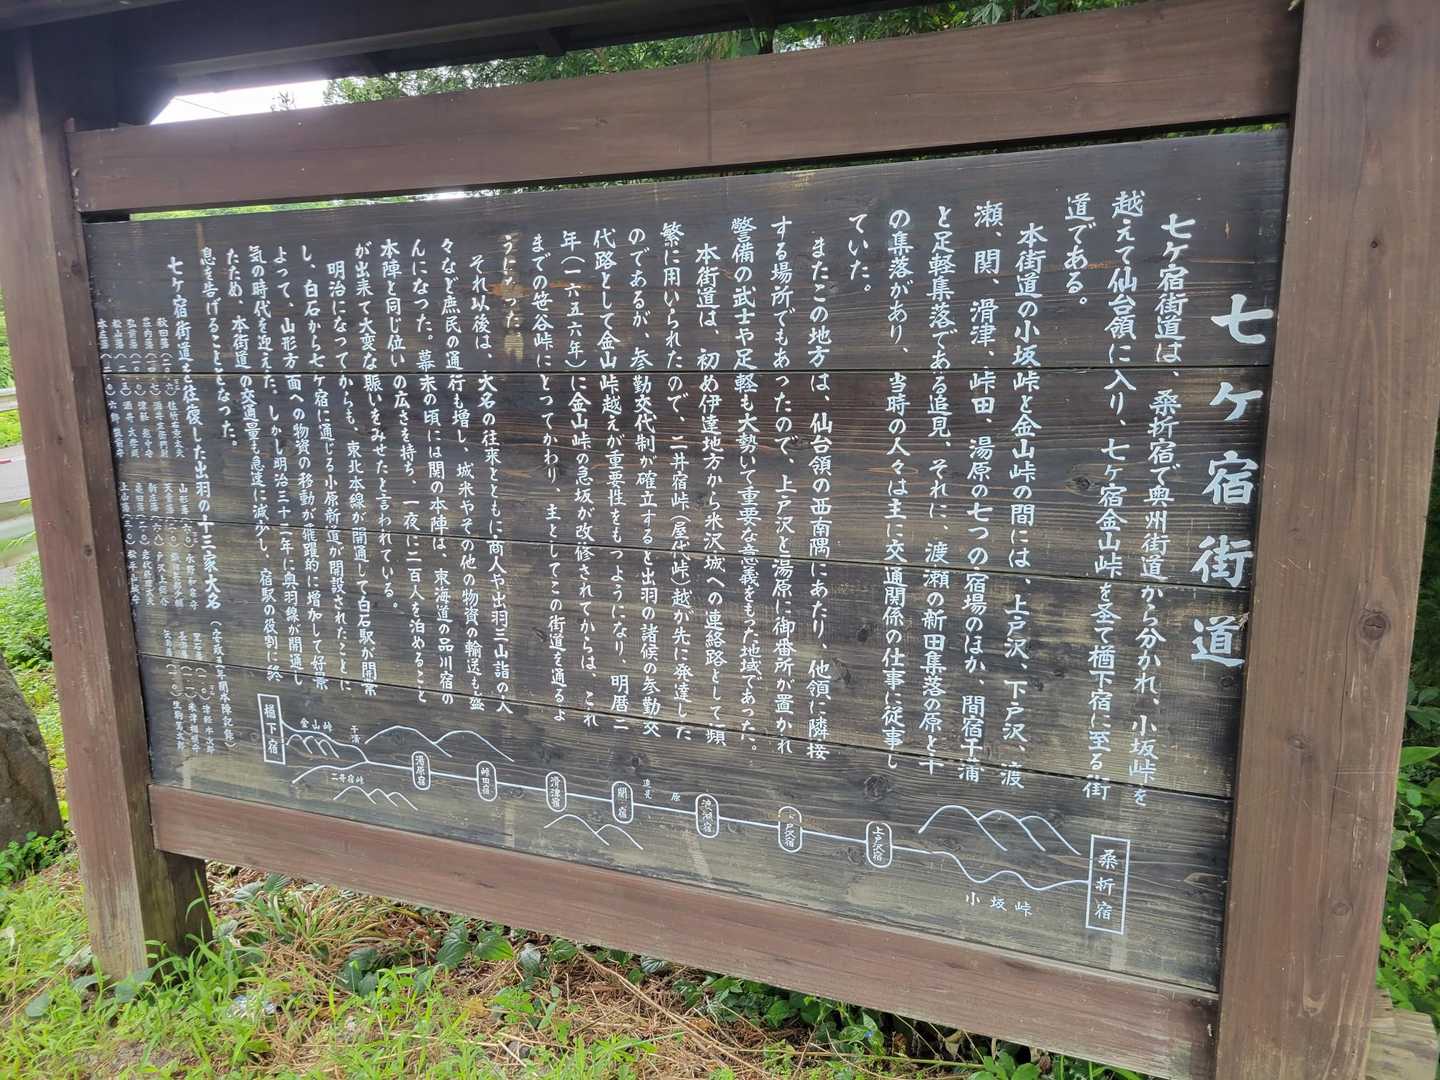 七ケ宿街道
七ケ宿街道は、桑折宿で奥州街道から分かれ、小坂峠を
越えて仙台領に入り、七ケ宿金山峠を圣て楢下宿に至る街
道である。
本街道の小坂峠と金山峠の間には、上戸沢、下戸沢、渡
瀬、関、滑津、峠田、湯原の七つの宿場のほか、間宿干蒲
と足軽集落である追見、それに、渡瀬の新田集落の原と干
の集落があり、当時の人々は主に交通関係の仕事に従事し
ていた。
またこの地方は、仙台領の西南隅にあたり、他領に隣接
する場所でもあったので、上戸沢と湯原に御番所が置かれ
警備の武士や足軽も大勢いて重要な意義をもった地域であった。
本街道は、初め伊達地方から米沢城への連絡路として頻
繁に用いられたので、二井宿峠(屋代峠)越が先に発達した
のであるが、参勤交代制が確立すると出羽の諸候の参勤交
代路として金山峠越えが重要性をもつようになり、明暦二
年(一六五六年)に金山峠の急坂が改修されてからは、これ
までの笹谷峠にとってかわり、主としてこの街道を通るよ
うになった
それ以後は、大名の往来とともに商人や出羽三山詣の人
々など庶民の通行も増し、城米やその他の物資の輸送も盛
んになった。幕末の頃には関の本陣は、東海道の品川宿の
本陣と同じ位いの広さを持ち、一夜に二百人を泊めること
が出来て大変な賑いをみせたと言われている。
明治になってからも、東北本線が開通して白石駅が開業
し、白石から七ケ宿に通じる小原新道が開設されたことに
よって、山形方面への物資の移動が飛躍的に増加して好景
気の時代を迎えた。しかし明治三十二年に奥羽線が開通し
たため、本街道の交通量も急速に減少し、宿駅の役割に終
息を告げることとなった。
七ケ宿街道を往復した出羽の十三家大名
秋田藩
庄内藩
弘前藩
松山藩
本荘藩
山形藩
天童藩
新庄藩
亀田藩
上山藩
黒石藩
長瀞藩
矢島藩
楢下宿
金山峠
干蒲
二井宿峠
湯原宿
峠田宿
滑津宿
関宿
追見
原
渡瀬宿
下戸沢宿
上戸沢宿
小坂峠
桑折宿